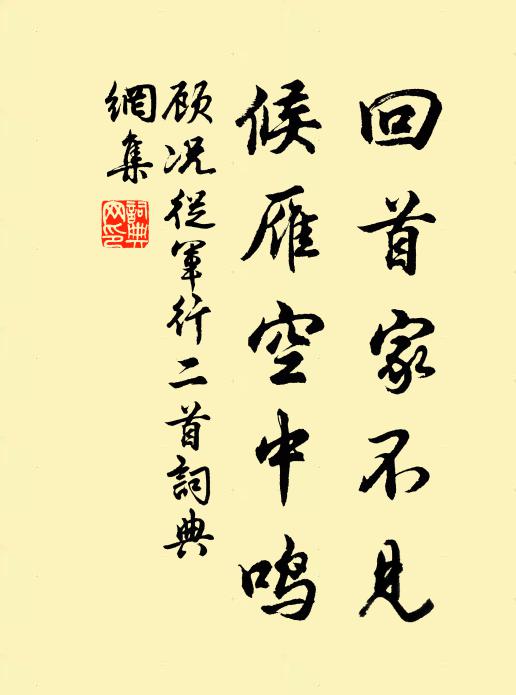 回首家不见
候雁空中鸣
顾况従军行二首詞典
網集
詞典网印